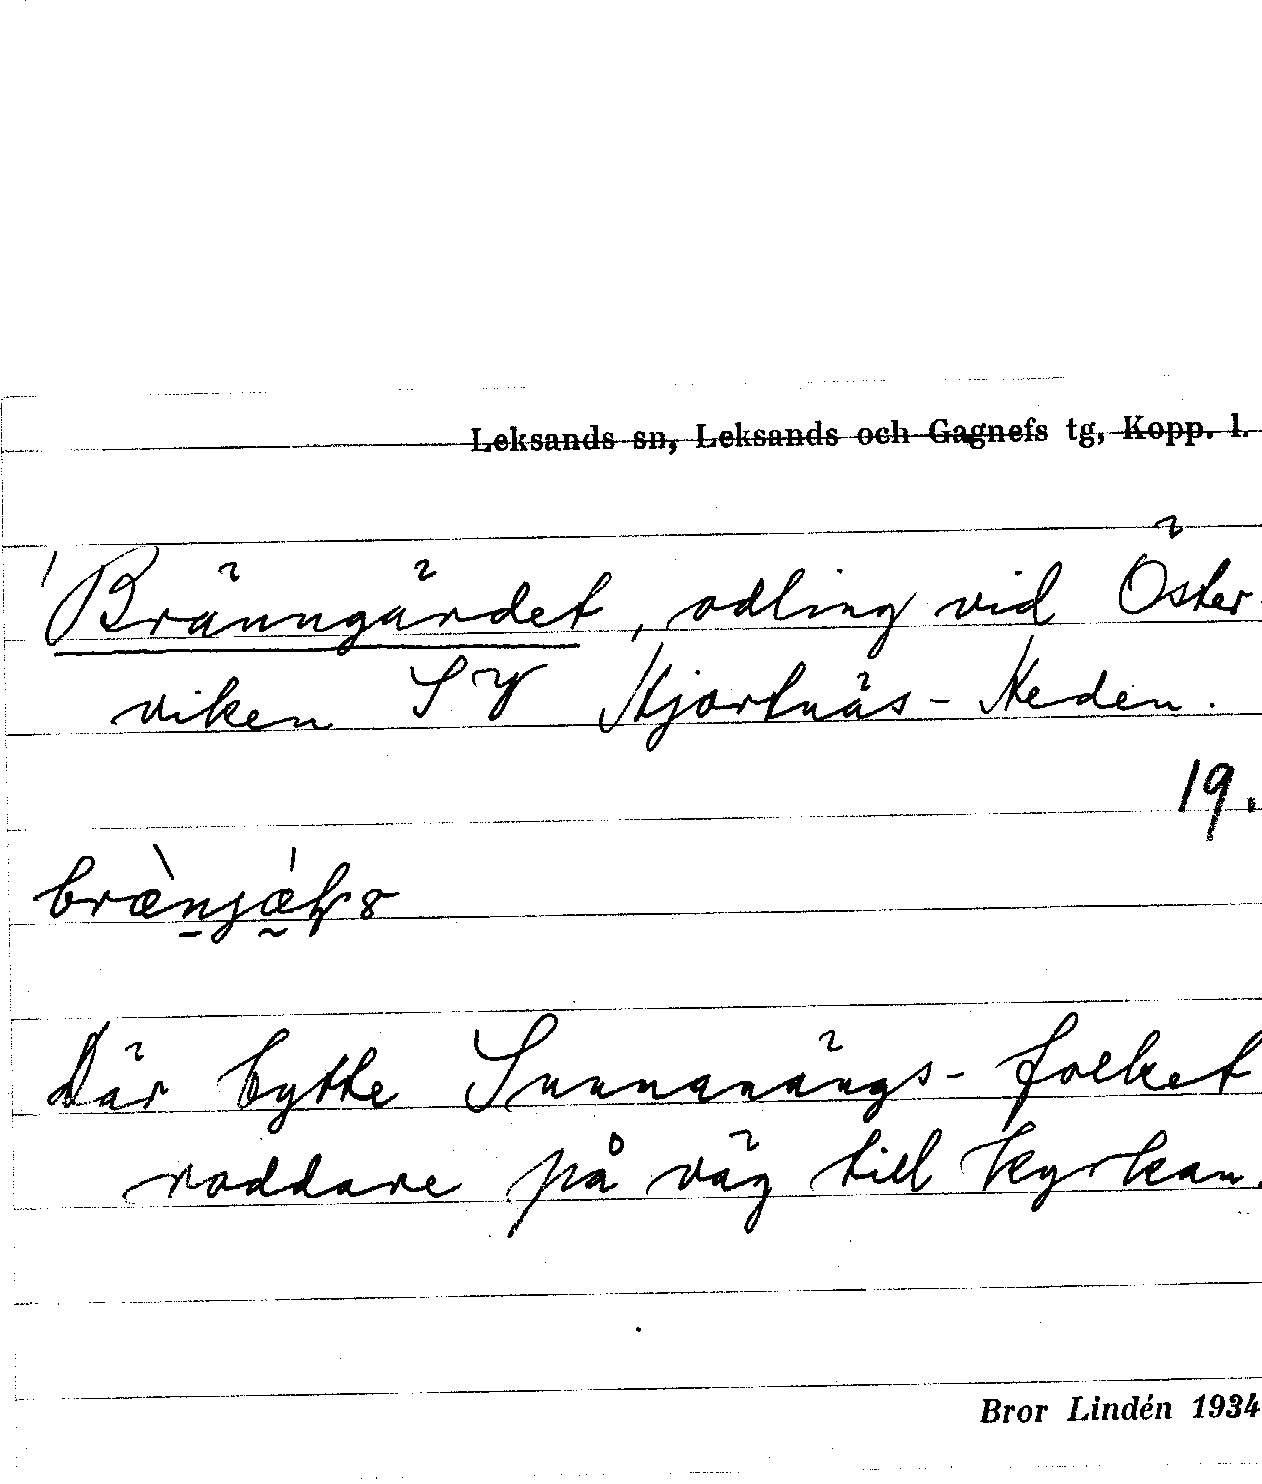 Leksands sn, Leksands och Gagnefs tg, Kopp. l.
Bränngärdet, odling vid Öster-
viken SV Hjortnäs-Heden.
19.
Där bytte Sunnanängs-folket
roddare på väg till kyrkan.
Bror Lindén 1934